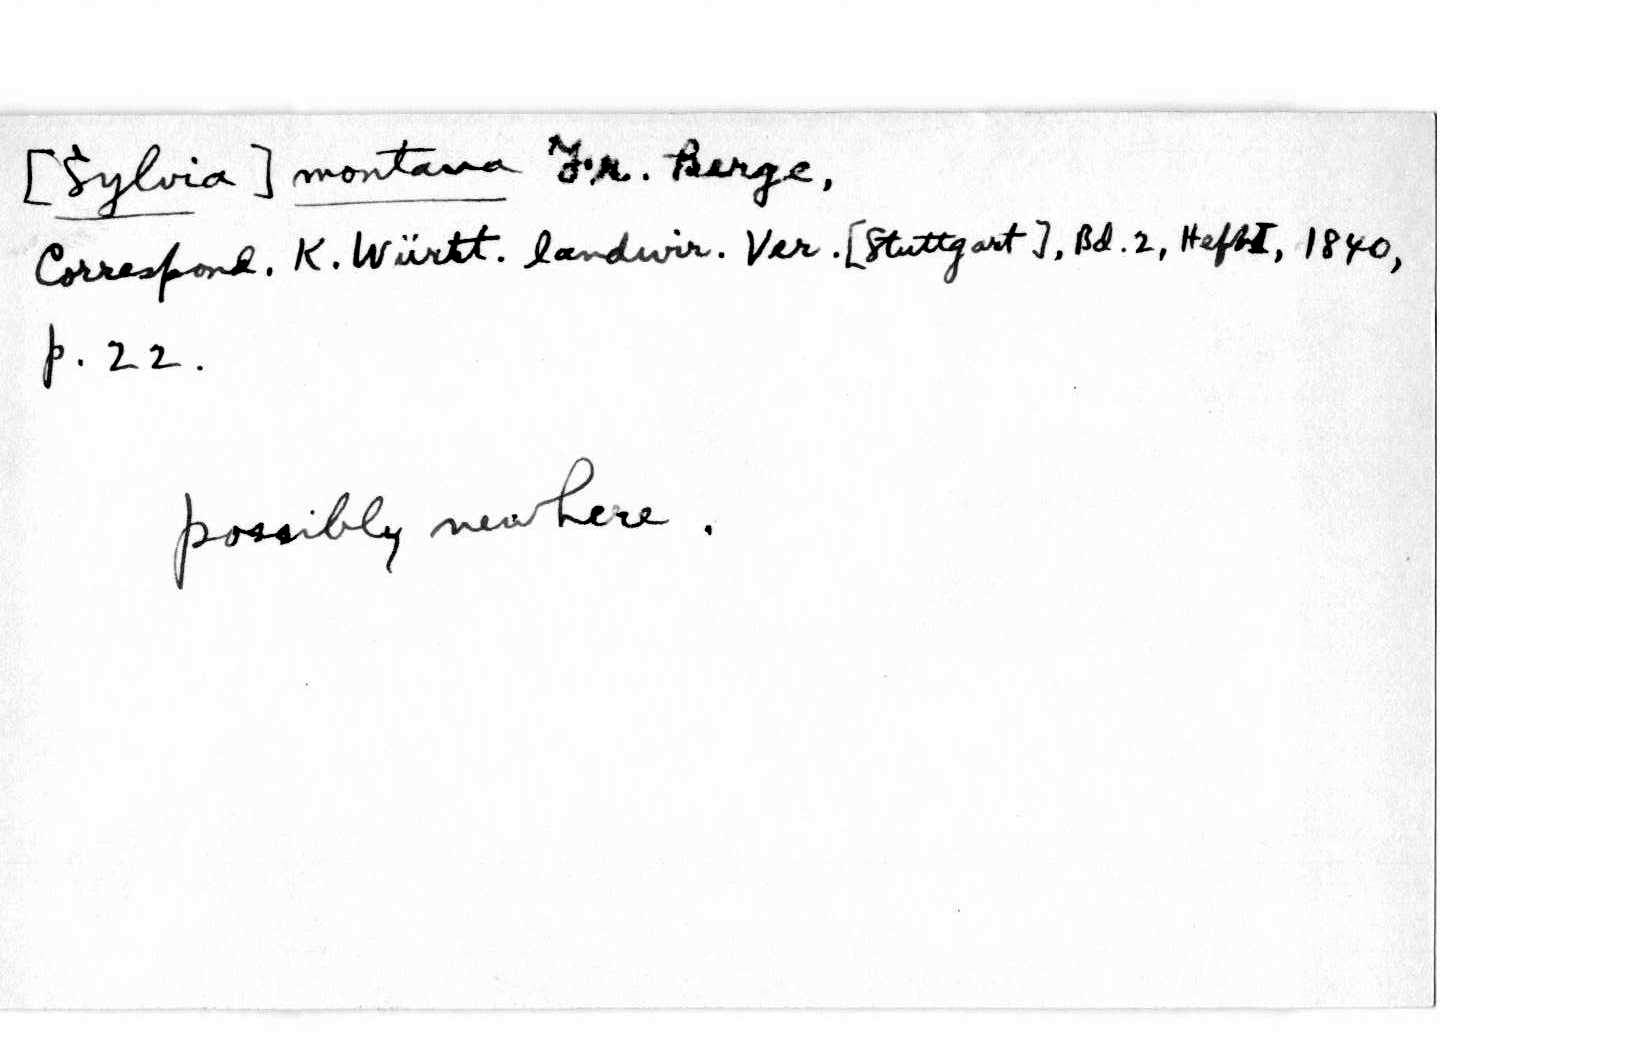 [Sylvia] montana Fr. Berge,
Correspond. K. Württ. landwir. Ver. [Stuttgart], Bd. 2, Heft I, 1840,
p. 22.
possibly new here.